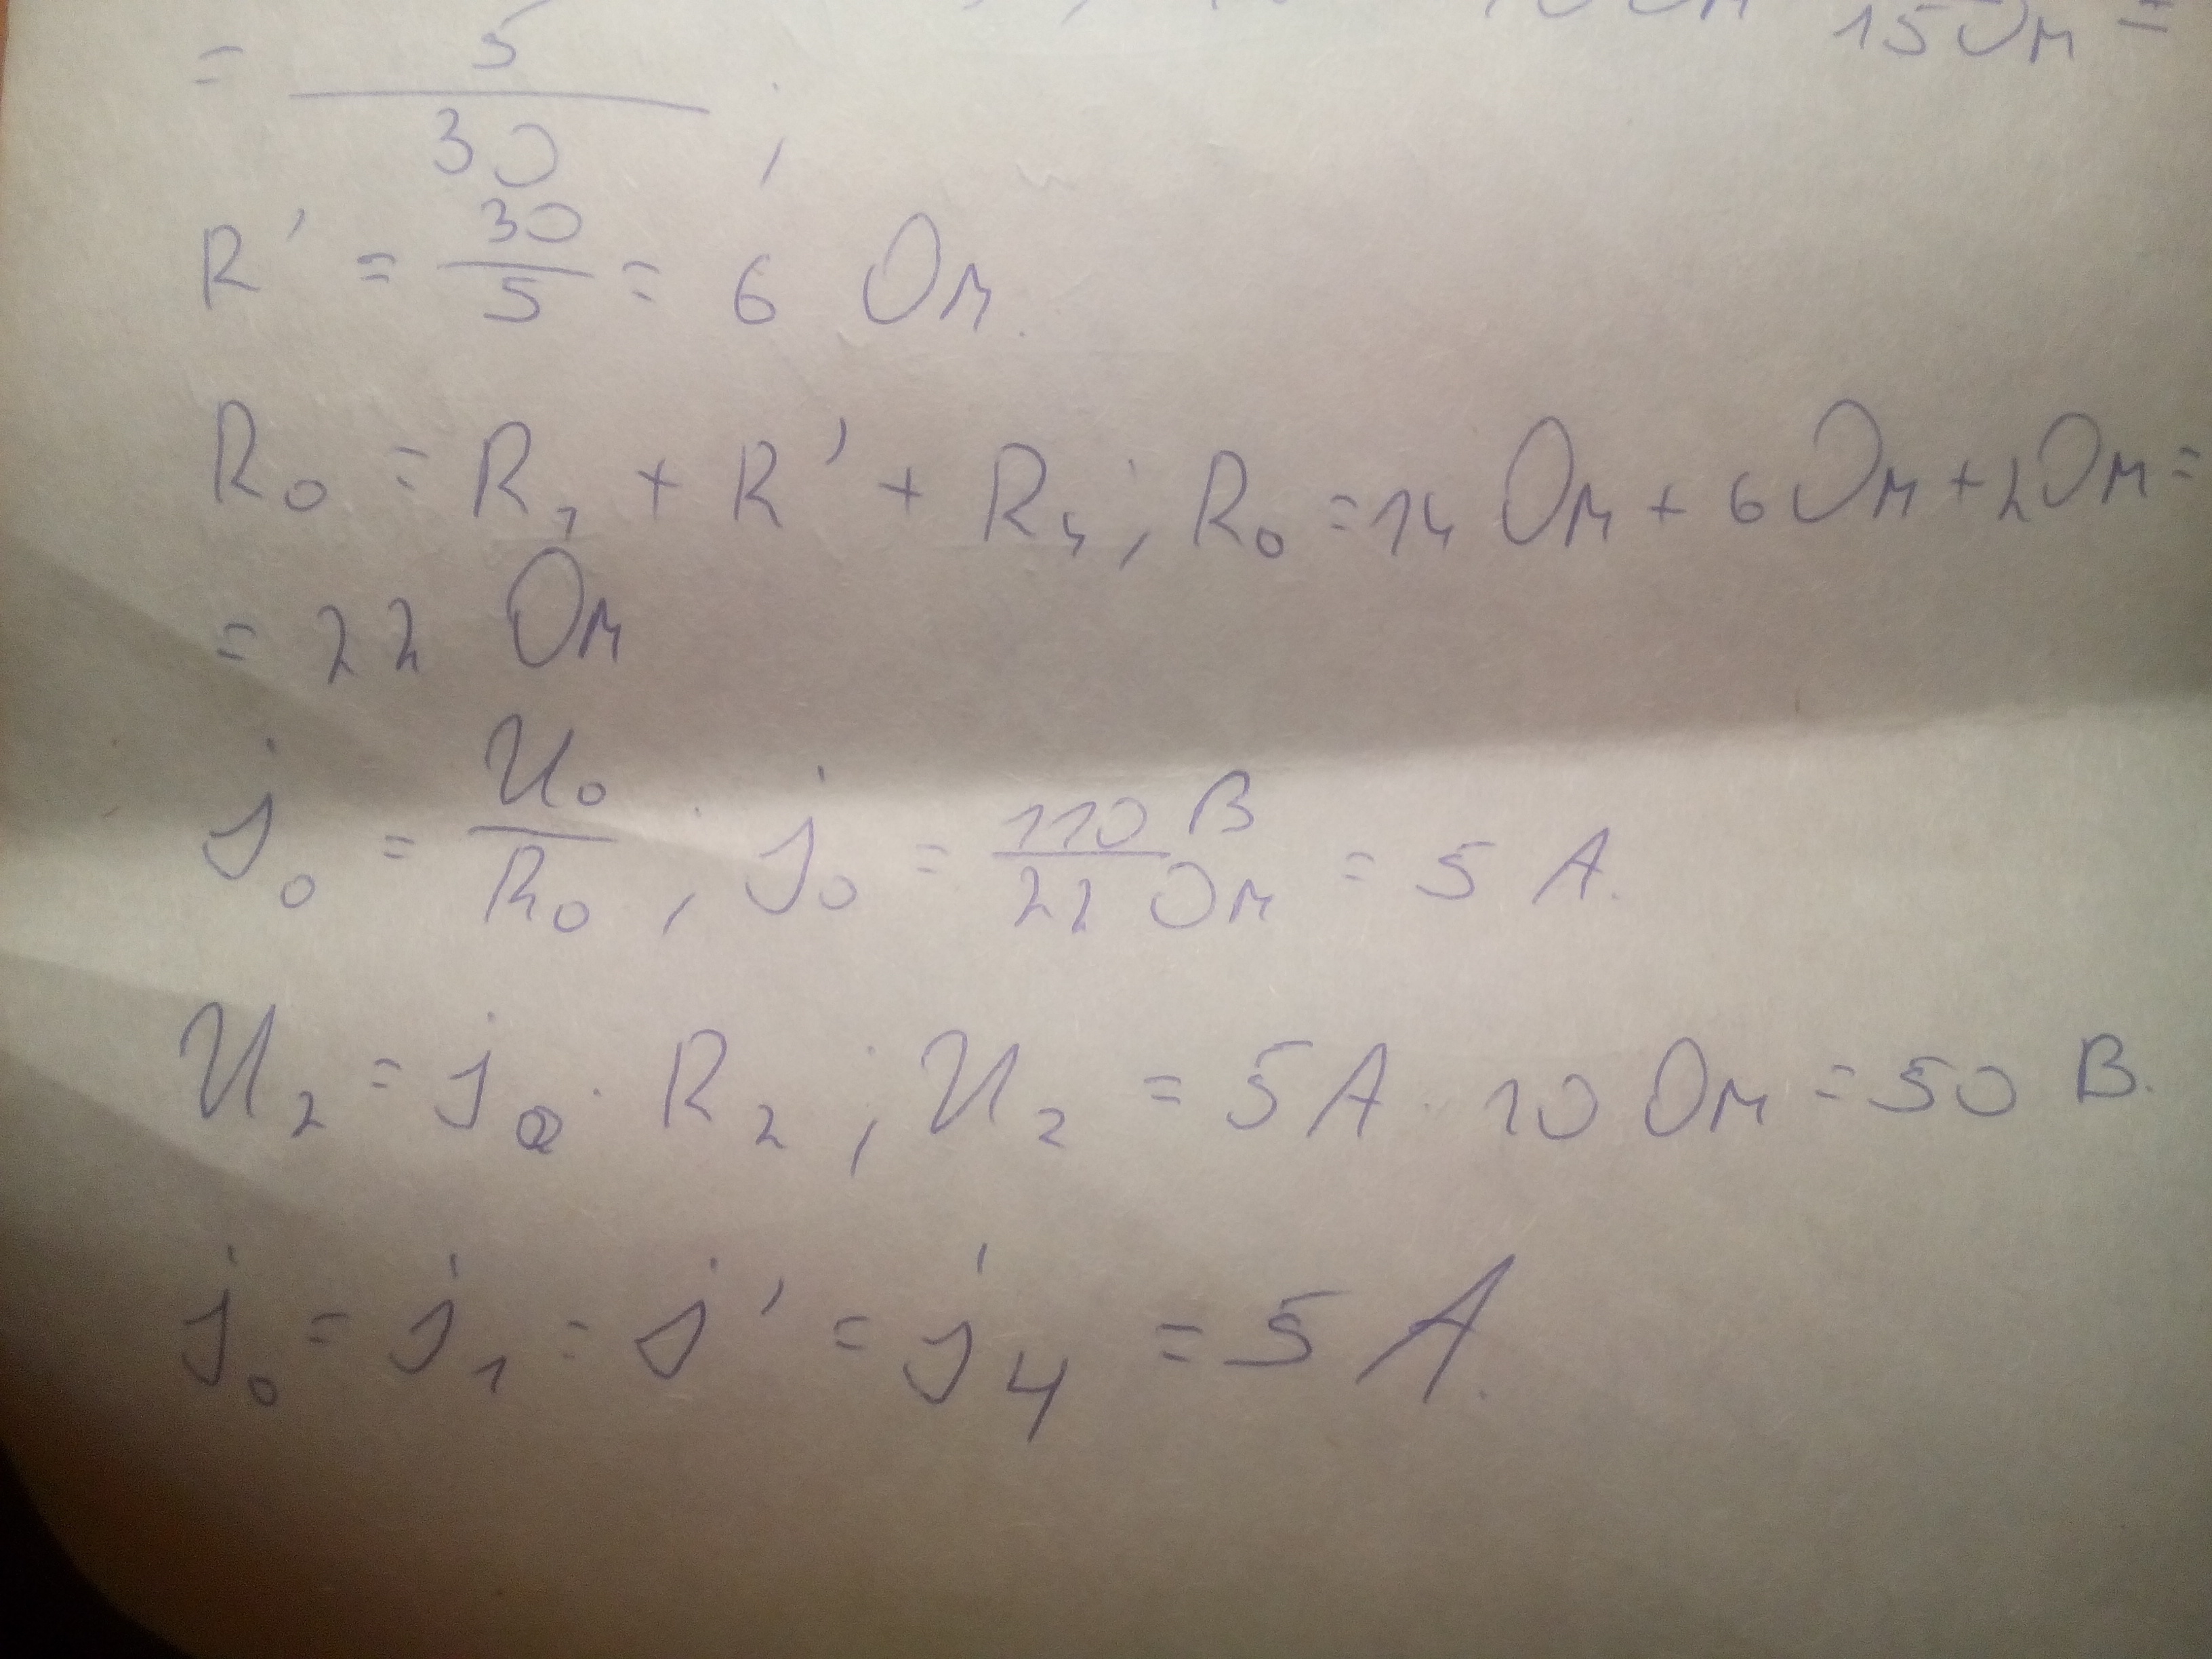 10 Ом 15 Ом =
= 5/30 ;
R' = 30/5 = 6 Ом.
R₀ = R₁ + R' + R₄ ; R₀ = 14 Ом + 6 Ом + 2 Ом =
= 22 Ом
j₀ = U₀/R₀ , j₀ = 110 В/22 Ом = 5 А.
U₂ = j₀ · R₂ ; U₂ = 5 А · 10 Ом = 50 В.
j₀ = j₁ = j' = j₄ = 5 А.